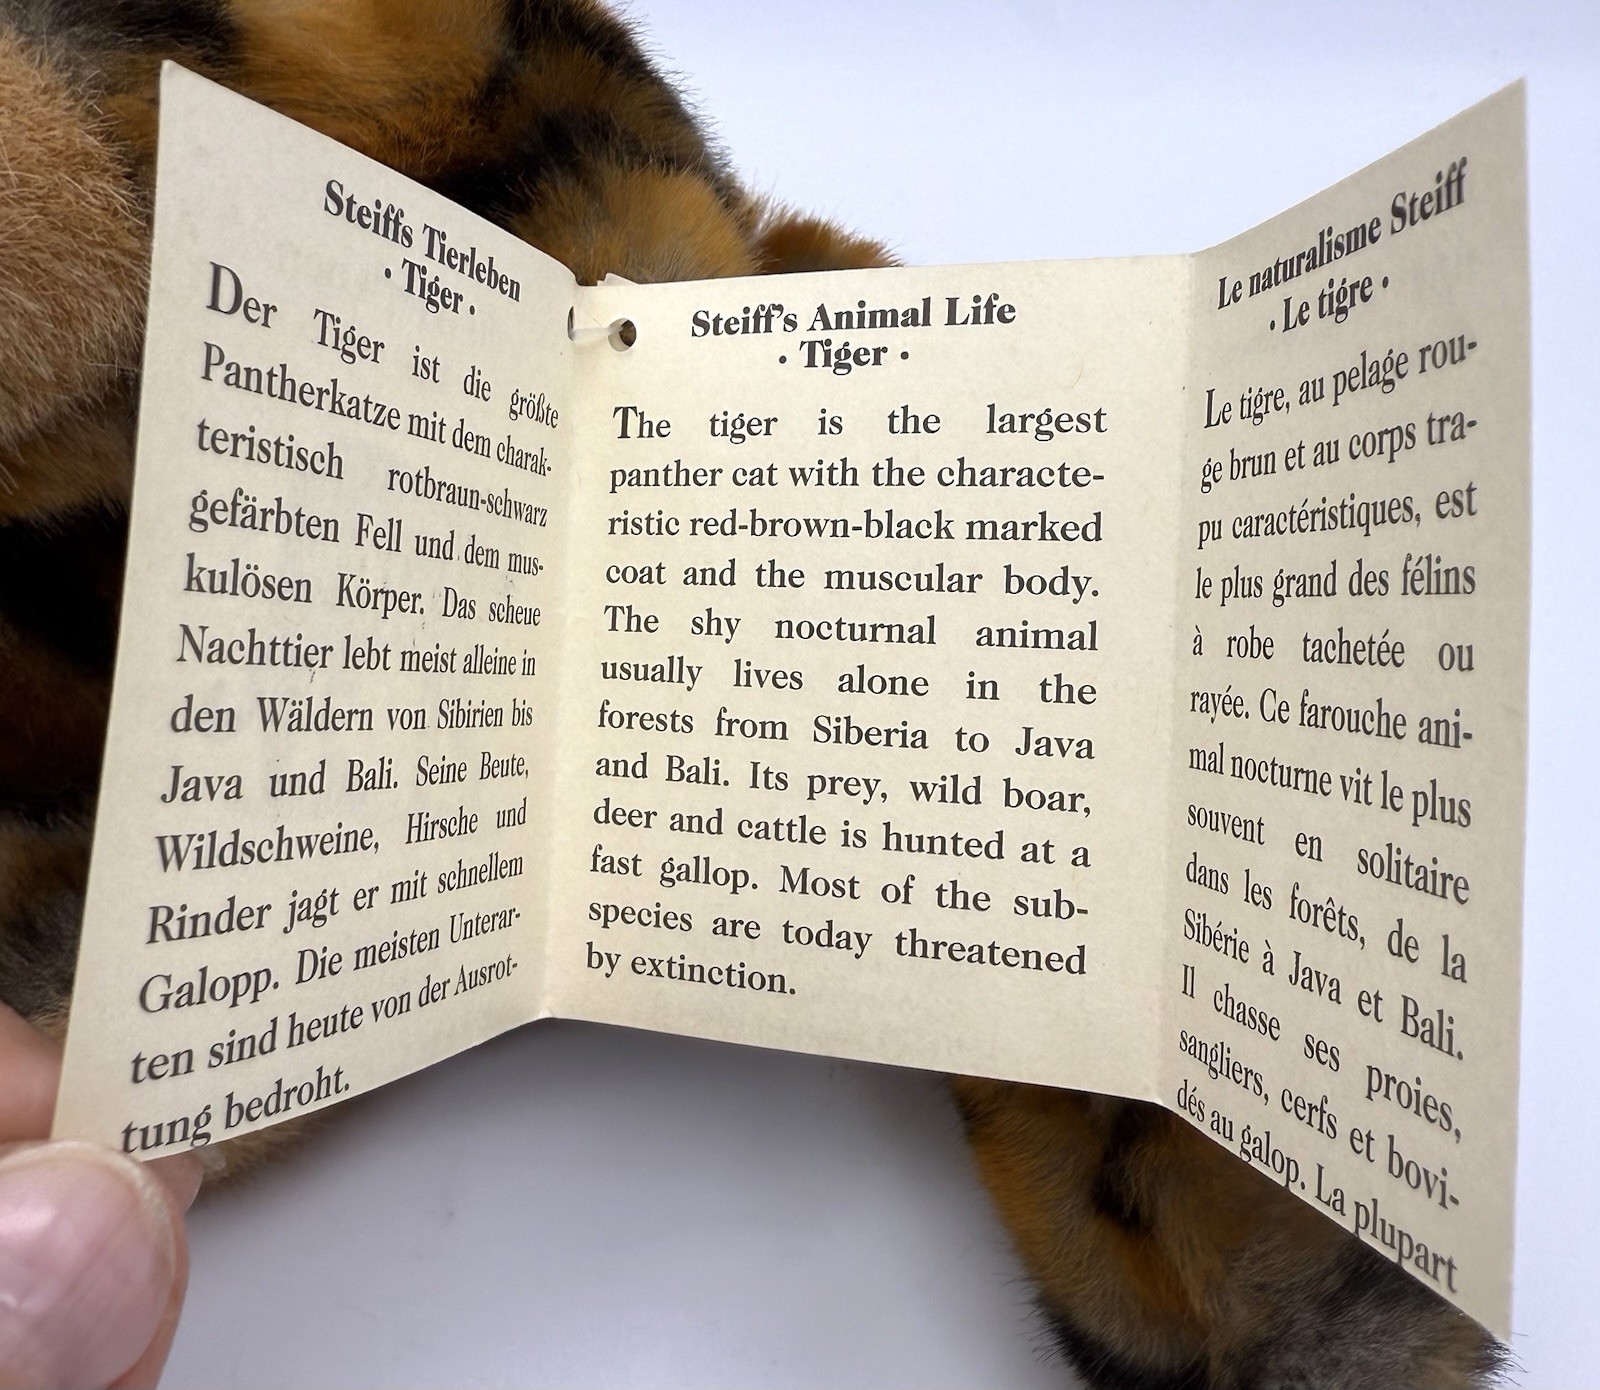 Steiffs Tierleben
· Tiger ·
Der Tiger ist die größte
Pantherkatze mit dem charak-
teristisch rotbraun-schwarz
gefärbten Fell und dem mus-
kulösen Körper. Das scheue
Nachttier lebt meist alleine in
den Wäldern von Sibirien bis
Java und Bali. Seine Beute,
Wildschweine, Hirsche und
Rinder jagt er mit schnellem
Galopp. Die meisten Unterar-
ten sind heute von der Ausrot-
tung bedroht.
Steiff's Animal Life
· Tiger ·
The tiger is the largest
panther cat with the characte-
ristic red-brown-black marked
coat and the muscular body.
The shy nocturnal animal
usually lives alone in the
forests from Siberia to Java
and Bali. Its prey, wild boar,
deer and cattle is hunted at a
fast gallop. Most of the sub-
species are today threatened
by extinction.
Le naturalisme Steiff
· Le tigre ·
Le tigre, au pelage rou-
ge brun et au corps tra-
pu caractéristiques, est
le plus grand des félins
à robe tachetée ou
rayée. Ce farouche ani-
mal nocturne vit le plus
souvent en solitaire
dans les forêts, de la
Sibérie à Java et Bali.
Il chasse ses proies,
sangliers, cerfs et bovi-
dés au galop. La plupart